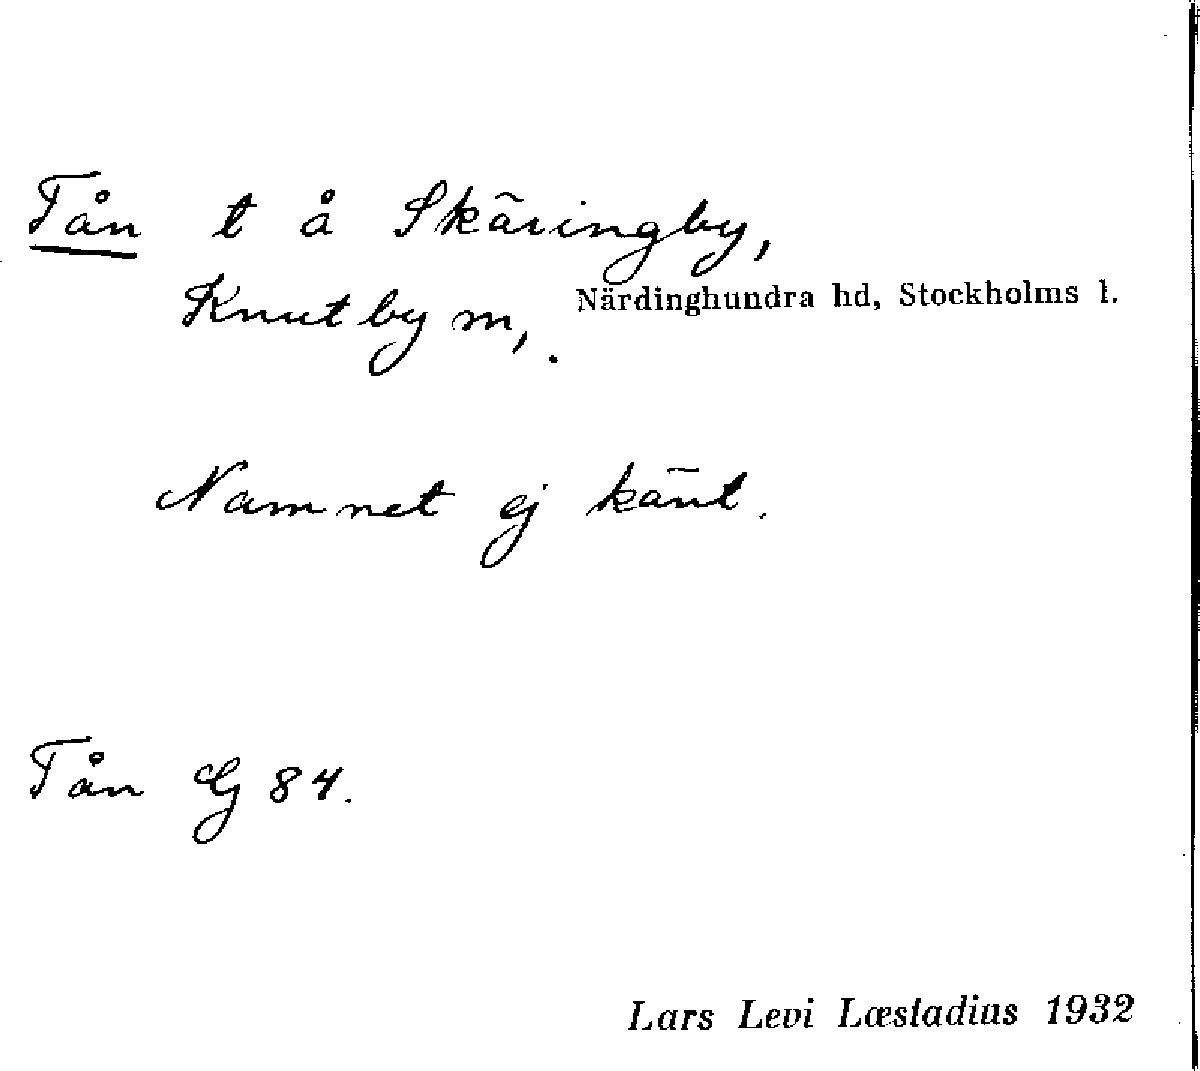 Tån t å Skäringby,
Knutby m, . Närdinghundra hd, Stockholms l.
Namnet ej känt.
Tån G 84.
Lars Levi Læstadius 1932